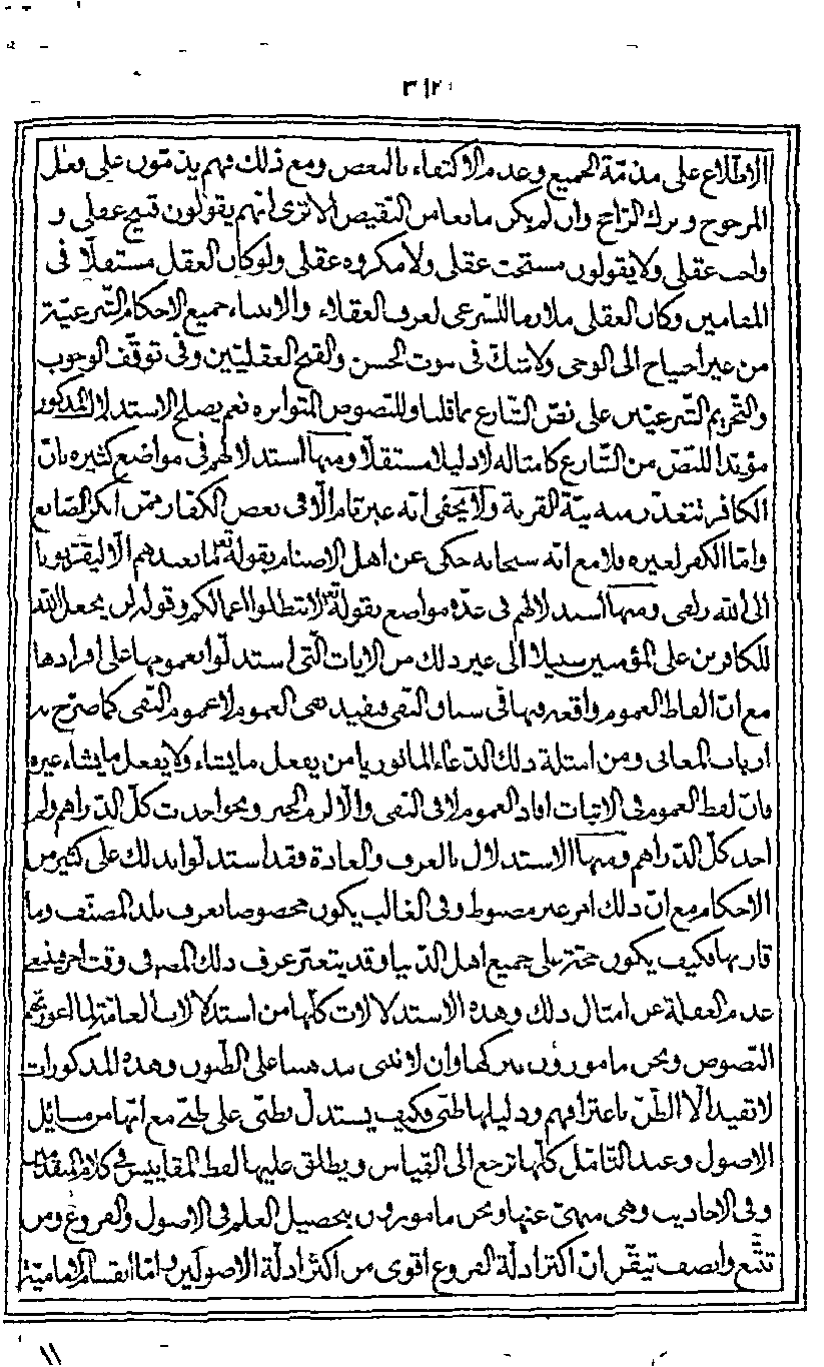 ٣١٢
الاطلاع على مذمّة الجميع وعدم الاكتفاء بالبعض ومع ذلك فهم يذمّون على فعل
المرجوح وترك الراجح وان لم يكن مانعا من النقيض الا ترى انهم يقولون قبيح عقلى و
واجب عقلى ولا يقولون مستحب عقلى ولا مكروه عقلى ولو كان العقل مستقلّا فى
المقامين وكان العقلى ملازما للشرعى لعرف العقلاء والانبياء جميع الاحكام الشرعيّة
من غير احتياج الى الوحى ولا شك فى ثبوت الحسن والقبح العقليّين وفى توقّف الوجوب
والتحريم الشرعيّين على نصّ الشارع لما قلنا وللنصوص المتواترة نعم يصلح الاستدلال المذكور
مؤيّدا للنصّ من الشارع كامثاله لا دليلا مستقلّا ومنها استدلالهم فى مواضع كثيرة بانّ
الكافر تتعذّر منه نيّة القربة ولا يخفى انه غير تام الّا فى بعض الكفار ممّن انكر الصانع
وامّا الكفر لغيره فلا مع انّه سبحانه حكى عن اهل الاصنام بقوله تعالى ما نعبدهم الّا ليقرّبونا
الى الله زلفى ومنها استدلالهم فى عدّة مواضع بقوله تعالى لا تبطلوا اعمالكم وقوله لن يجعل الله
للكافرين على المؤمنين سبيلا الى غير ذلك من الايات الّتى استدلّوا بعمومها على افرادها
مع انّ الفاظ العموم واقعة فيها فى سياق النفى فيفيد نفى العموم لا عموم النفى كما صرّح به
ارباب المعانى ومن امثلة ذلك الدّعاء الماثور يا من يفعل ما يشاء ولا يفعل ما يشاء غيره
فانّ لفظ العموم فى الاثبات افاد العموم لا فى النفى والّا لزم الجبر ونحو اخذت كلّ الدّراهم ولم
اخذ كلّ الدّراهم ومنها الاستدلال بالعرف والعادة فقد استدلّوا بذلك على كثير من
الاحكام مع انّ ذلك امر غير مضبوط وفى الغالب يكون مخصوصا بعرف بلد المصنّف وما
قاربها فكيف يكون حجّة على جميع اهل الدّنيا وقد يتغيّر عرف ذلك فى وقت اخر فينبغى
عدم الغفلة عن امثال ذلك وهذه الاستدلالات كلّها من استدلالات العامّة لما اعوزتهم
النصوص ونحن مامورون بتركها وان لا نبنى مذهبنا على الظنون وهذه المذكورات
لا تفيد الّا الظنّ باعترافهم ودليلها ظنّى فكيف يستدلّ بظنّى على ظنّى مع انّها من مسائل
الاصول وعند التامّل كلّها ترجع الى القياس ويطلق عليها لفظ المقاييس فى كلام المتقدّمين
وفى الاحاديث وهى منهىّ عنها ونحن مامورون بتحصيل العلم فى الاصول والفروع ومن
تتبّع وانصف تيقّن انّ اكثر ادلّة الفروع اقوى من اكثر ادلّة الاصولين وامّا انقسام الاماميّة